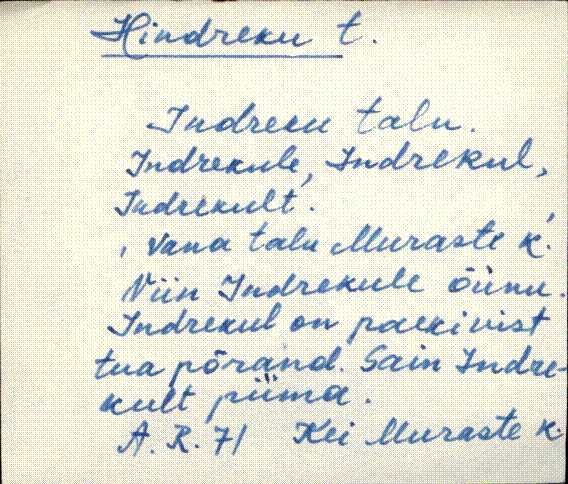 Hindreku t.
Indreku talu.
Indrekule, Indrekul,
Indrekult.
, Vana talu Muraste k.
Viin Indrekule õunu.
Indrekul on paekivist
tua põrand. Sain Indre-
kult piima.
A. R. 71 Kei Muraste k.